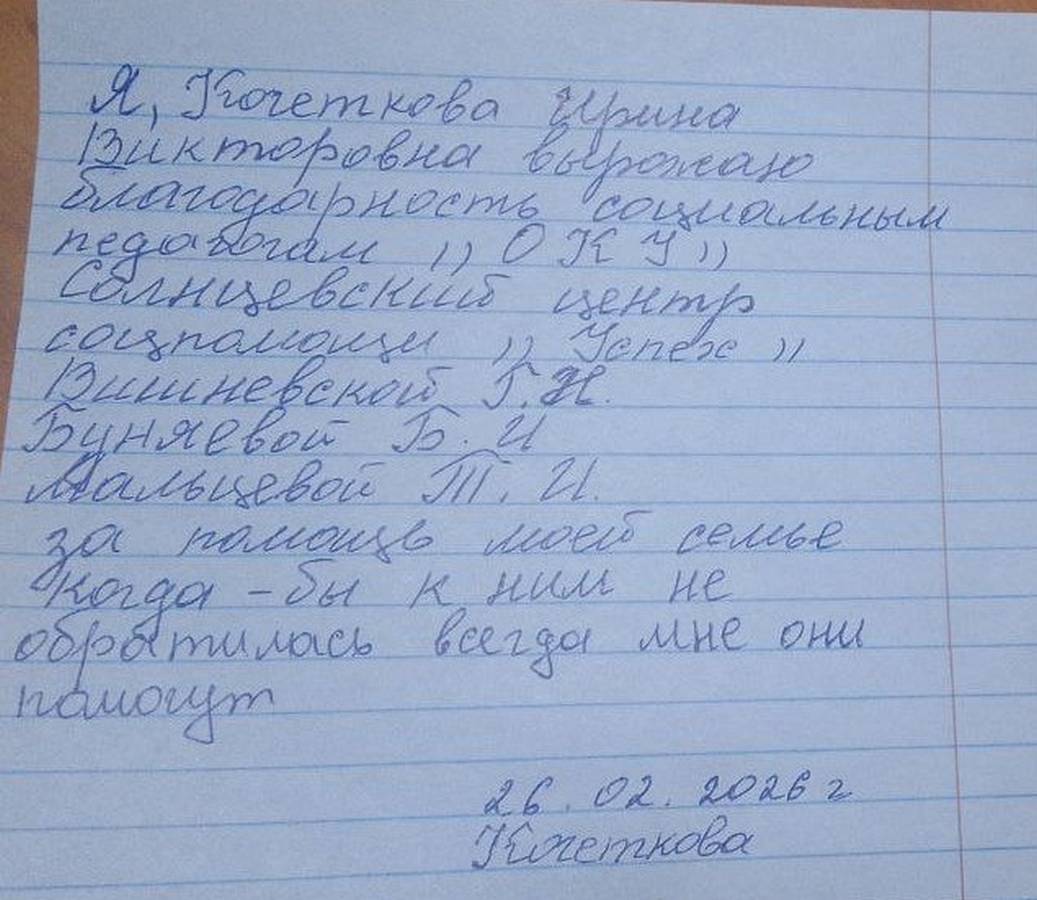 Я, Кочеткова Ирина
Викторовна выражаю
благодарность социальным
педагогам ,, О К У ,,
Солнцевский центр
соцпомощи ,, Успех ,,
Вишневской Г.Н.
Буняевой Б. И
Мальцевой Т. И.
за помощь моей семье
Когда - бы к ним не
обратилась всегда мне они
помогут
26. 02. 2026 г
Кочеткова